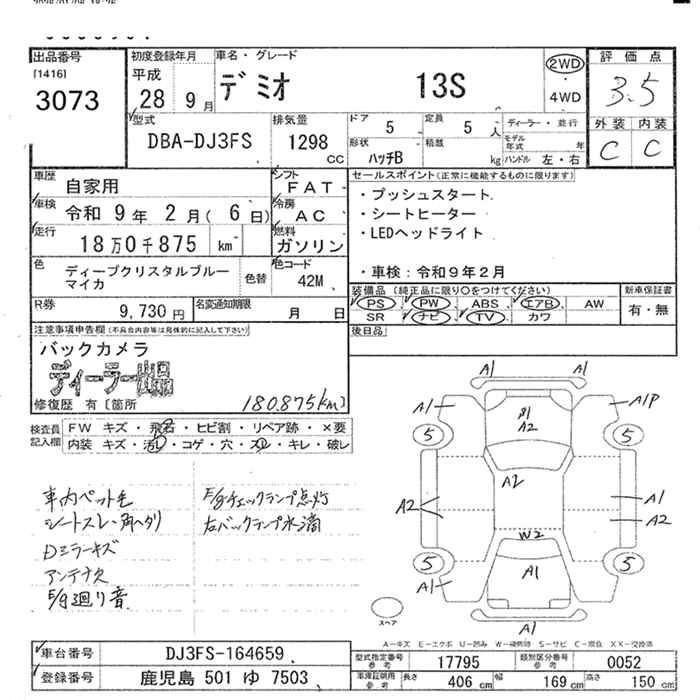 出品番号
[1416]
3073
初度登録年月
平成
28 9月
車名・グレード
デミオ 13S
2WD
4WD
評価点
3.5
外装 内装
C C
型式
DBA-DJ3FS
排気量
1298 CC
ドア 5
定員 5人
形状 ハッチB
積載 kg
ディーラー・並行
モデル年式 年
ハンドル 左・右
車歴 自家用
車検 令和 9年 2月( 6日)
走行 18万0千875 km
シフト FAT
冷房 AC
燃料 ガソリン
色 ディープクリスタルブルーマイカ
色替
色コード 42M
R券 9,730円
名変通知期限 月 日
セールスポイント(正常に機能するものに限ります)
・プッシュスタート
・シートヒーター
・LEDヘッドライト
・車検:令和9年2月
装備品(純正品に限り○をつけてください)
PS PW ABS エアB AW
SR ナビ TV カワ
新車保証書
有・無
後日品
注意事項申告欄(不具合内容等は具体的に記入して下さい)
バックカメラ
修復歴 有〔箇所
180.875km]
検査員記入欄
FW キズ・飛石・ヒビ割・リペア跡・×要
内装 キズ・汚れ・コゲ・穴・スレ・キレ・破レ
車内ペット毛
シートスレ・角ヘタリ
Dミラーキズ
アンテナ欠
E/g廻り音
E/gチェックランプ点灯
右バックランプ水滴
A1 A1
A1 A1P
5 5
B1
A2
A2
A2 A1
A2
W2
5 5
A1 A1
A1
スペア
A-キズ E-エクボ U-凹み W-補修跡 S-サビ C-腐食 XX-交換済
車台番号 DJ3FS-164659
登録番号 鹿児島 501 ゆ 7503
型式指定番号 参考 17795
類別区分番号 参考 0052
車庫証明用 参考 長さ 406 cm 幅 169 cm 高さ 150 cm